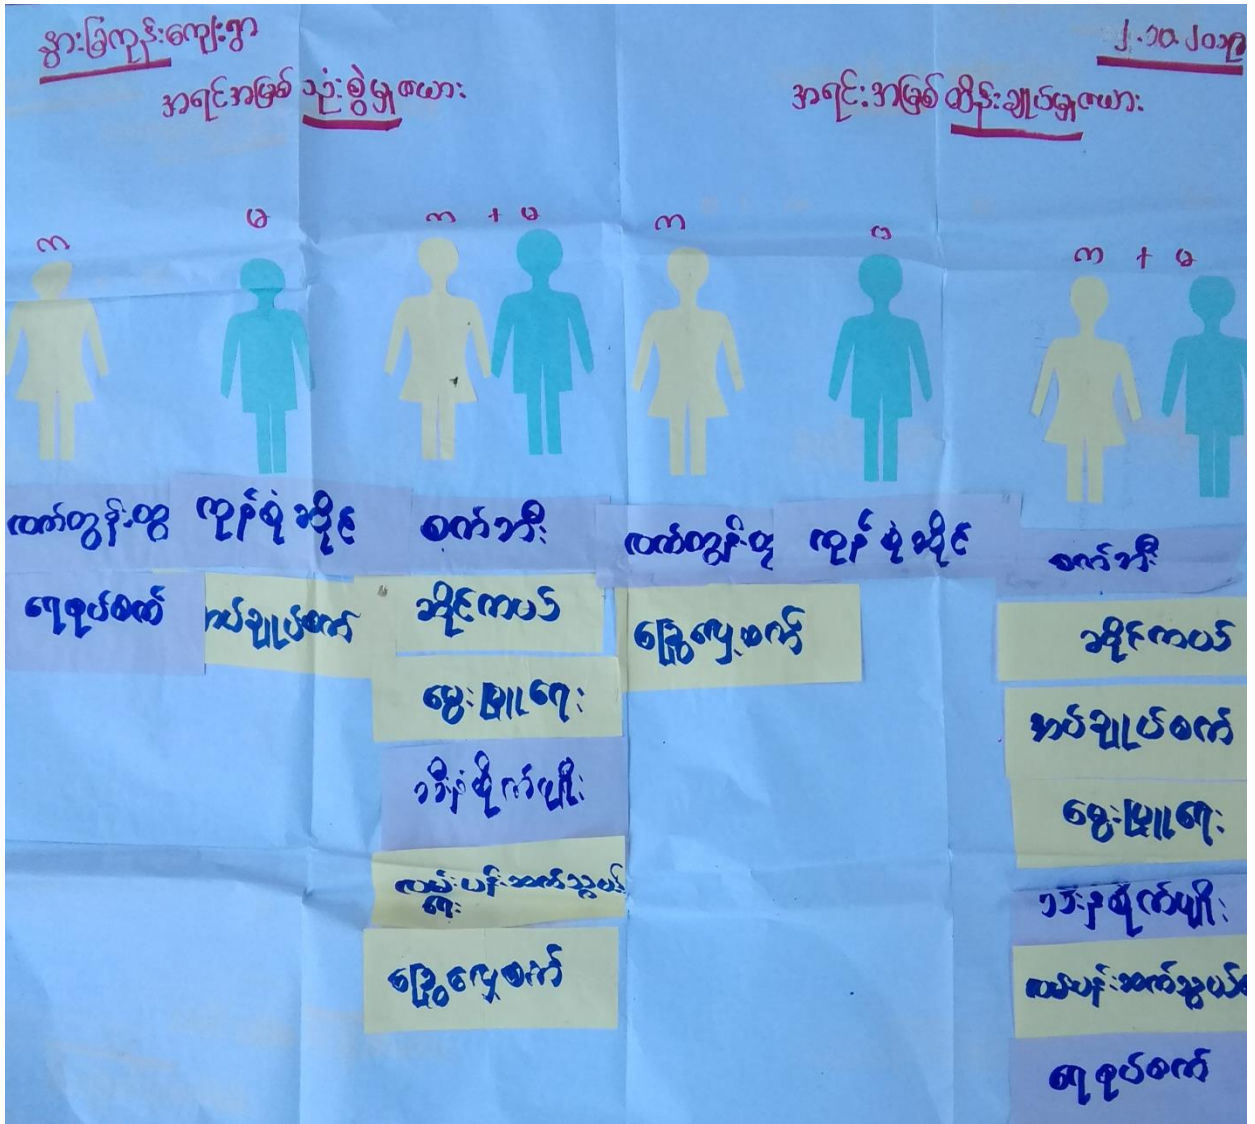 နွားခြံကုန်းကျေးရွာ
၂.၁၀.၂၀၁၉
အရင်အမြစ် သုံးစွဲမှုဇယား
အရင်းအမြစ် ထိန်းချုပ်မှုဇယား
က
မ
က + မ
က
မ
က + မ
လက်တွန်းထွ
ကုန်စုံဆိုင်
စက်ဘီး
လက်တွန်းထွ
ကုန်စုံဆိုင်
စက်ဘီး
ရေစုပ်စက်
အပ်ချုပ်စက်
ဆိုင်ကယ်
ခြွေလှေ့စက်
ဆိုင်ကယ်
မွေးမြူရေး
အပ်ချုပ်စက်
သီးနှံစိုက်ပျိုး
မွေးမြူရေး
လမ်းပန်းဆက်သွယ်ရေး
သီးနှံစိုက်ပျိုး
ခြွေလှေ့စက်
လမ်းပန်းဆက်သွယ်
ရေစုပ်စက်